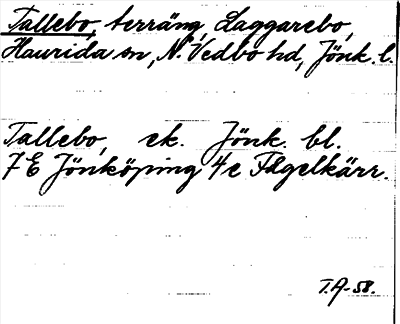 Tallebo, terräng, Laggarebo,
Haurida sn, N. Vedbo hd, Jönk. l.
Tallebo, ek. Jönk. bl.
7 E Jönköping 4 e Fågelkärr.
T.A-58.